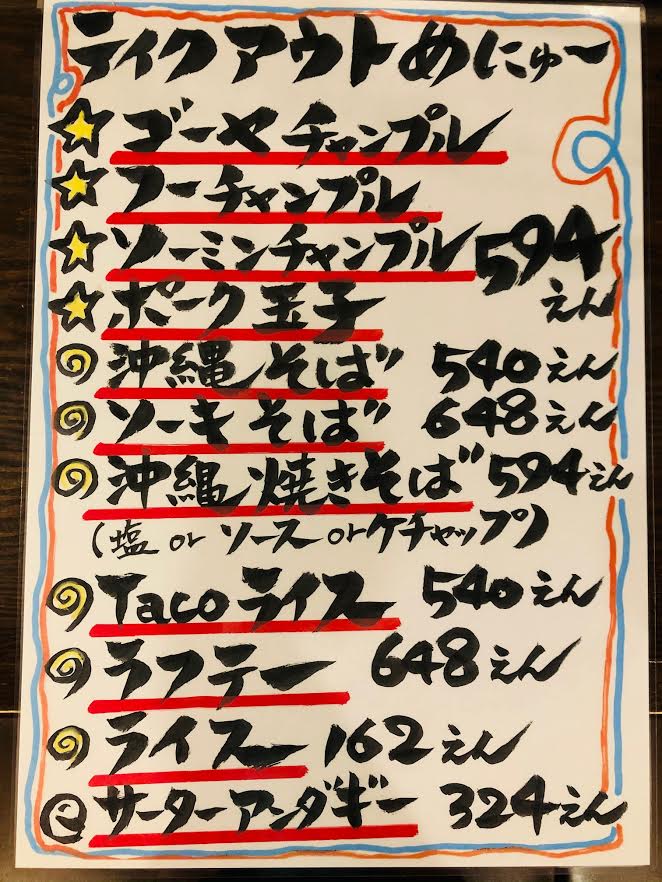 テイクアウトめにゅ～
ゴーヤチャンプル
フーチャンプル
ソーミンチャンプル 594
ポーク玉子 えん
沖縄そば 540えん
ソーキそば 648えん
沖縄焼きそば 594えん
(塩 or ソース or ケチャップ)
Tacoライス 540えん
ラフテー 648えん
ライス 162えん
サーターアンダギー 324えん